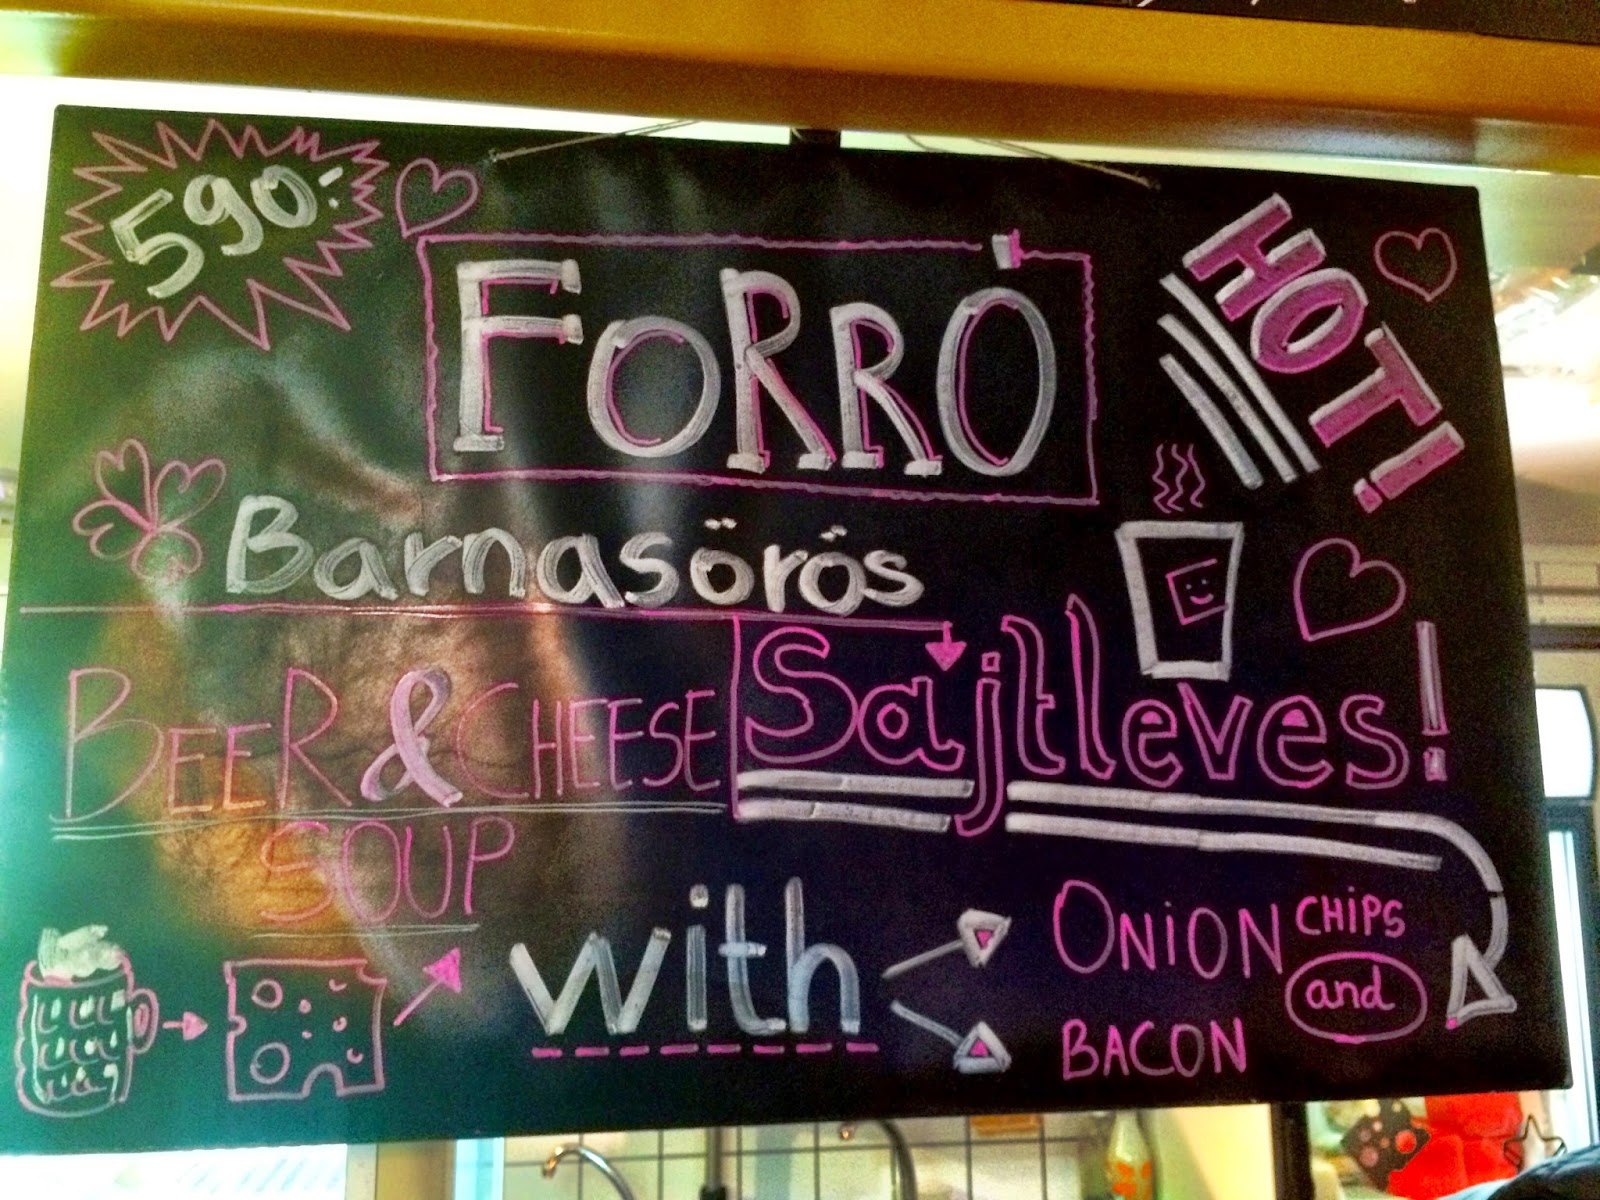 590!
FORRÓ
HOT!
Barnasörös
BEER & CHEESE
SOUP
Sajtleves!
with
ONION CHIPS
and
BACON